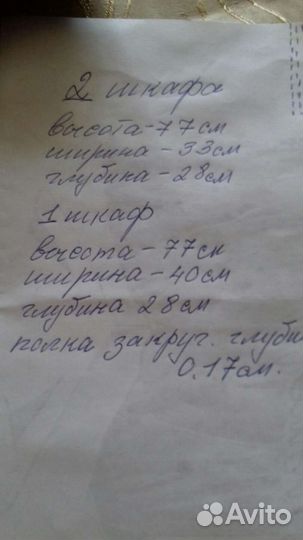 2 шкафа
высота-77см
ширина-33см
глубина-28см
1 шкаф
высота-77см
ширина-40см
глубина 28см
полка закруг. глуби
0.17см.
Avito